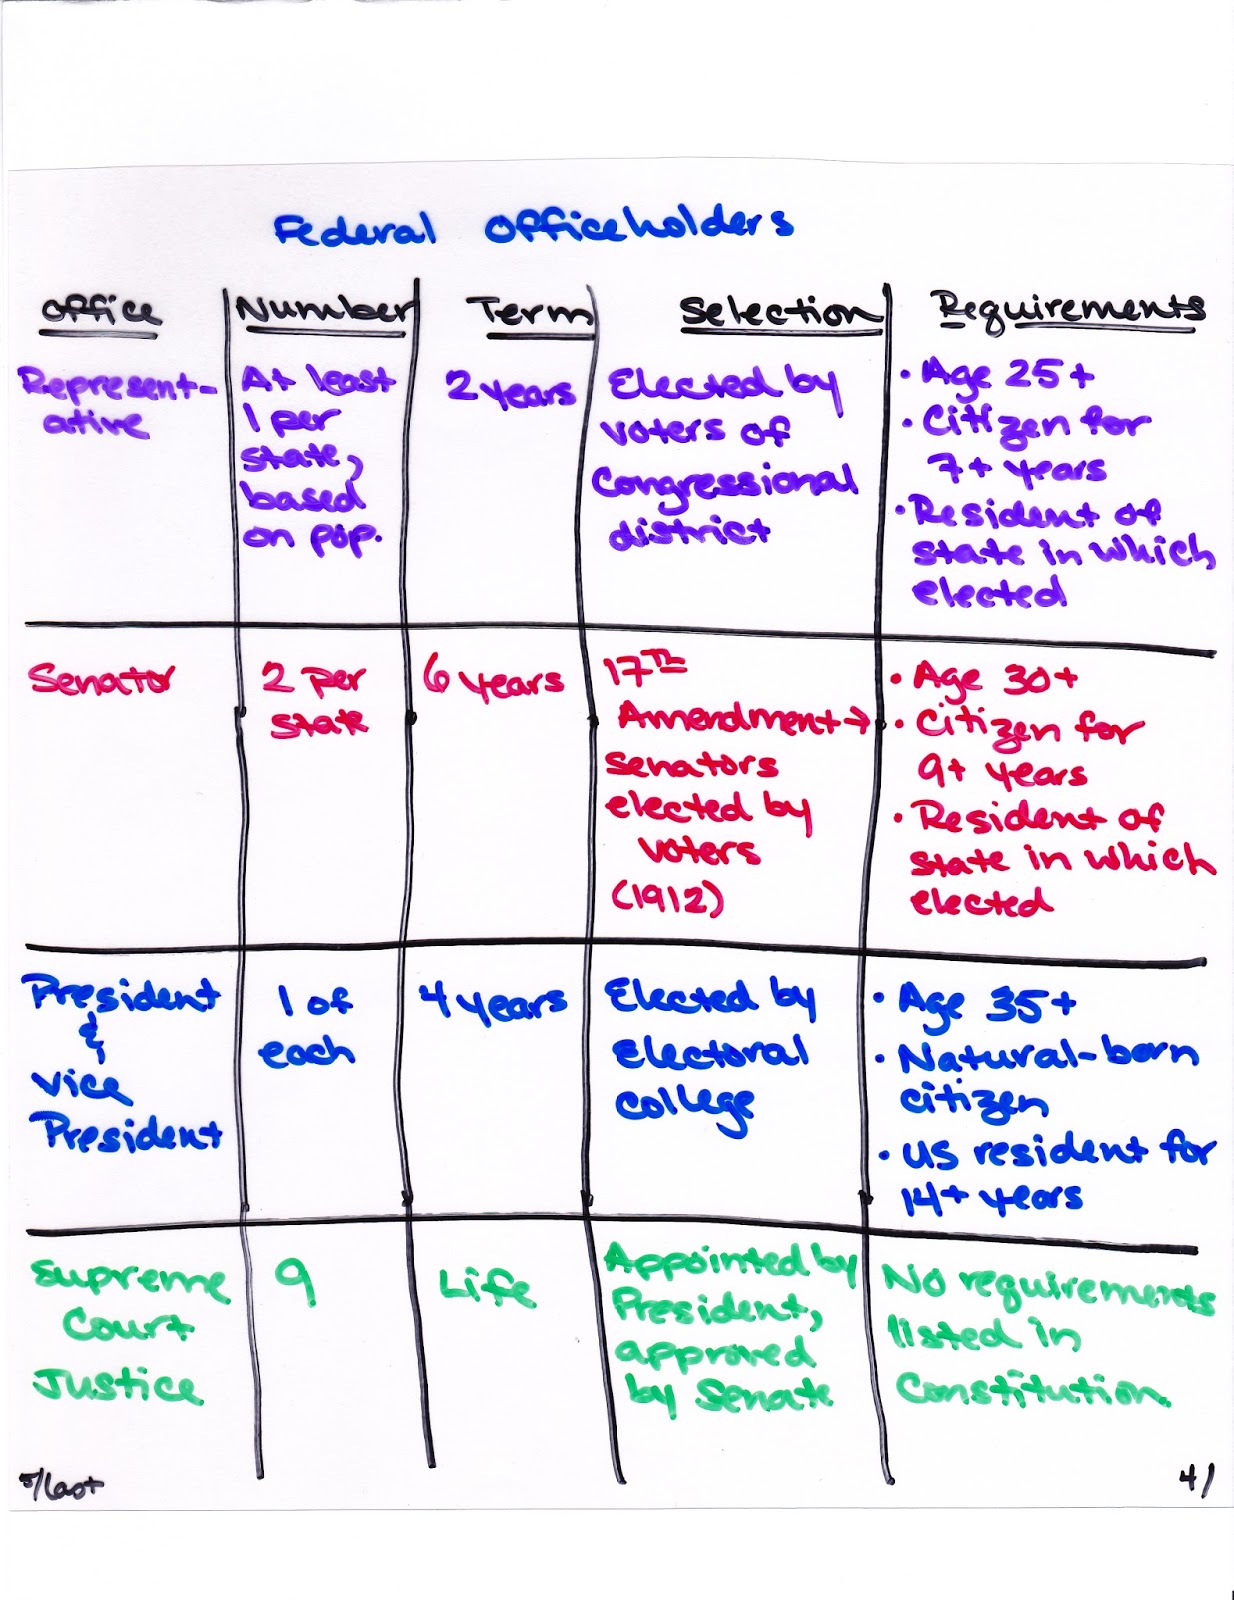 Federal Officeholders
Office Number Term Selection Requirements
Represent-
ative
At least
1 per
state,
based
on pop.
2 years
Elected by
voters of
Congressional
district
• Age 25+
• Citizen for
7+ years
• Resident of
state in which
elected
Senator
2 per
state
6 years
17TH
Amendment→
senators
elected by
voters
(1912)
• Age 30+
• Citizen for
9+ years
• Resident of
state in which
elected
President
&
Vice
President
1 of
each
4 years
Elected by
Electoral
college
• Age 35+
• Natural-born
citizen
• US resident for
14+ years
Supreme
Court
Justice
9
Life
Appointed by
President,
approved
by Senate
No requirements
listed in
Constitution.
4/